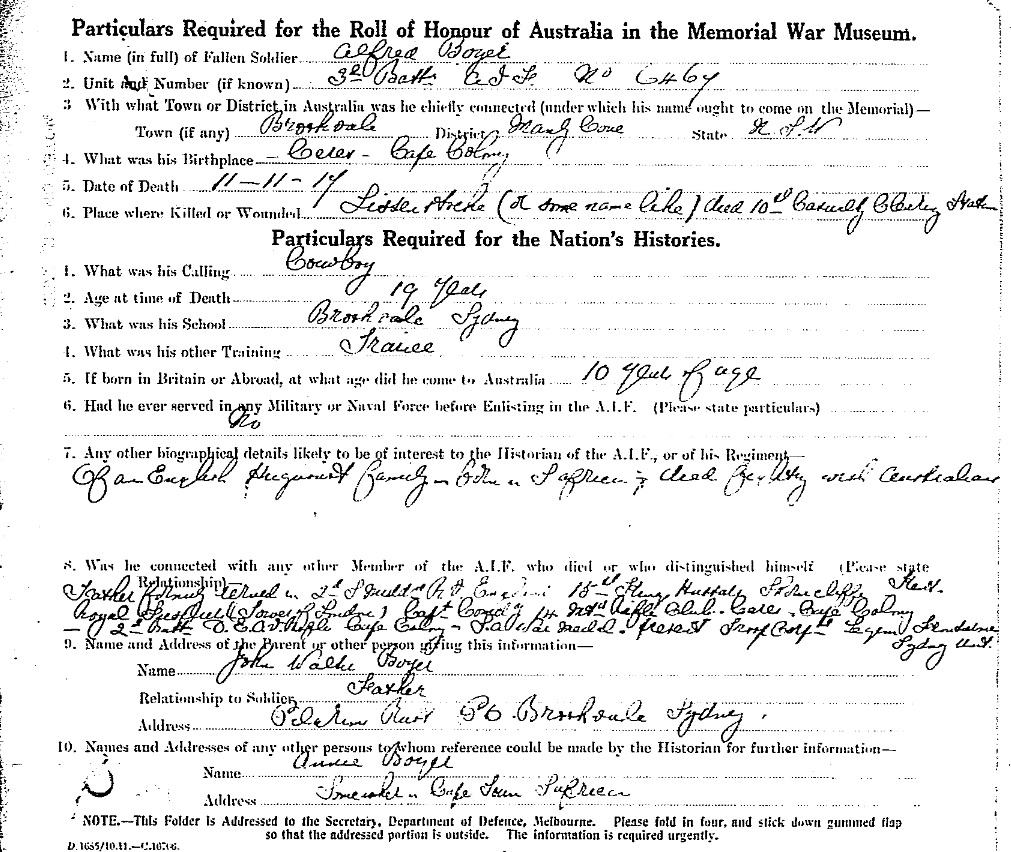 Particulars Required for the Roll of Honour of Australia in the Memorial War Museum.
1. Name (in full) of Fallen Soldier Alfred
2. Unit and Number (if known) 3rd Battn A I F No 6464
3 With what Town or District in Australia was he chiefly connected (under which his name ought to come on the Memorial)—
Town (if any) Brookvale District Manly Cove State N S W
4. What was his Birthplace — Ceres - Cape Colony
5. Date of Death 11-11-17
6. Place where Killed or Wounded (or some name like) died 10th Casualty Clearing Station
Particulars Required for the Nation's Histories.
1. What was his Calling Cowboy
2. Age at time of Death 19 years
3. What was his School Brookvale Sydney
4. What was his other Training
5. If born in Britain or Abroad, at what age did he come to Australia 10 years of age
6. Had he ever served in any Military or Naval Force before Enlisting in the A.I.F. (Please state particulars)
No
7. Any other biographical details likely to be of interest to the Historian of the A.I.F., or of his Regiment—
Of an English Huguenot family - born in S Africa & died fighting with Australians
8. Was he connected with any other Member of the A.I.F. who died or who distinguished himself (Please state
Relationship)—
Father formerly served in 2d 15th Kings Hussars
Royal (Tower of London) Capt Comdg Rifle Club - Ceres - Cape Colony
- 2d Battn Cape Colony - medal - present
Sydney Unit.
9. Name and Address of the Parent or other person giving this information—
Name John
Relationship to Soldier Father
Address P O Brookvale Sydney.
10. Names and Addresses of any other persons to whom reference could be made by the Historian for further information—
Name Annie
Address Cape Town S Africa
NOTE.—This Folder is Addressed to the Secretary, Department of Defence, Melbourne. Please fold in four, and stick down gummed flap
so that the addressed portion is outside. The information is required urgently.